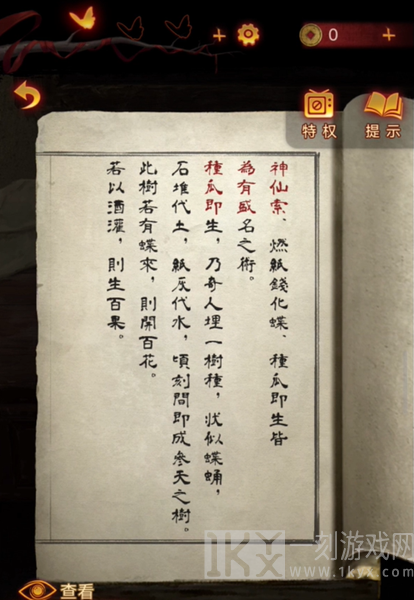 0
特权
提示
神仙索、燃紙錢化蝶、種瓜即生皆
為有盛名之術。
種瓜即生，乃奇人埋一樹種，狀似蝶蛹，
石堆代土，紙灰代水，頃刻間即成參天之樹。
此樹若有蝶來，則開百花。
若以酒灌，則生百果。
查看
1KX一刻游戏网
www.1kyx.com